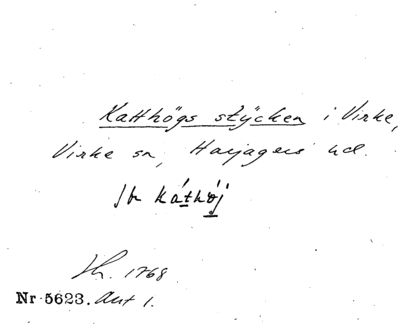 Katthögs stÿcken i Virke,
Virke sn, Harjagers hd.
Jb káthǿj
Sk. 1768
Nr 5623. Akt 1.